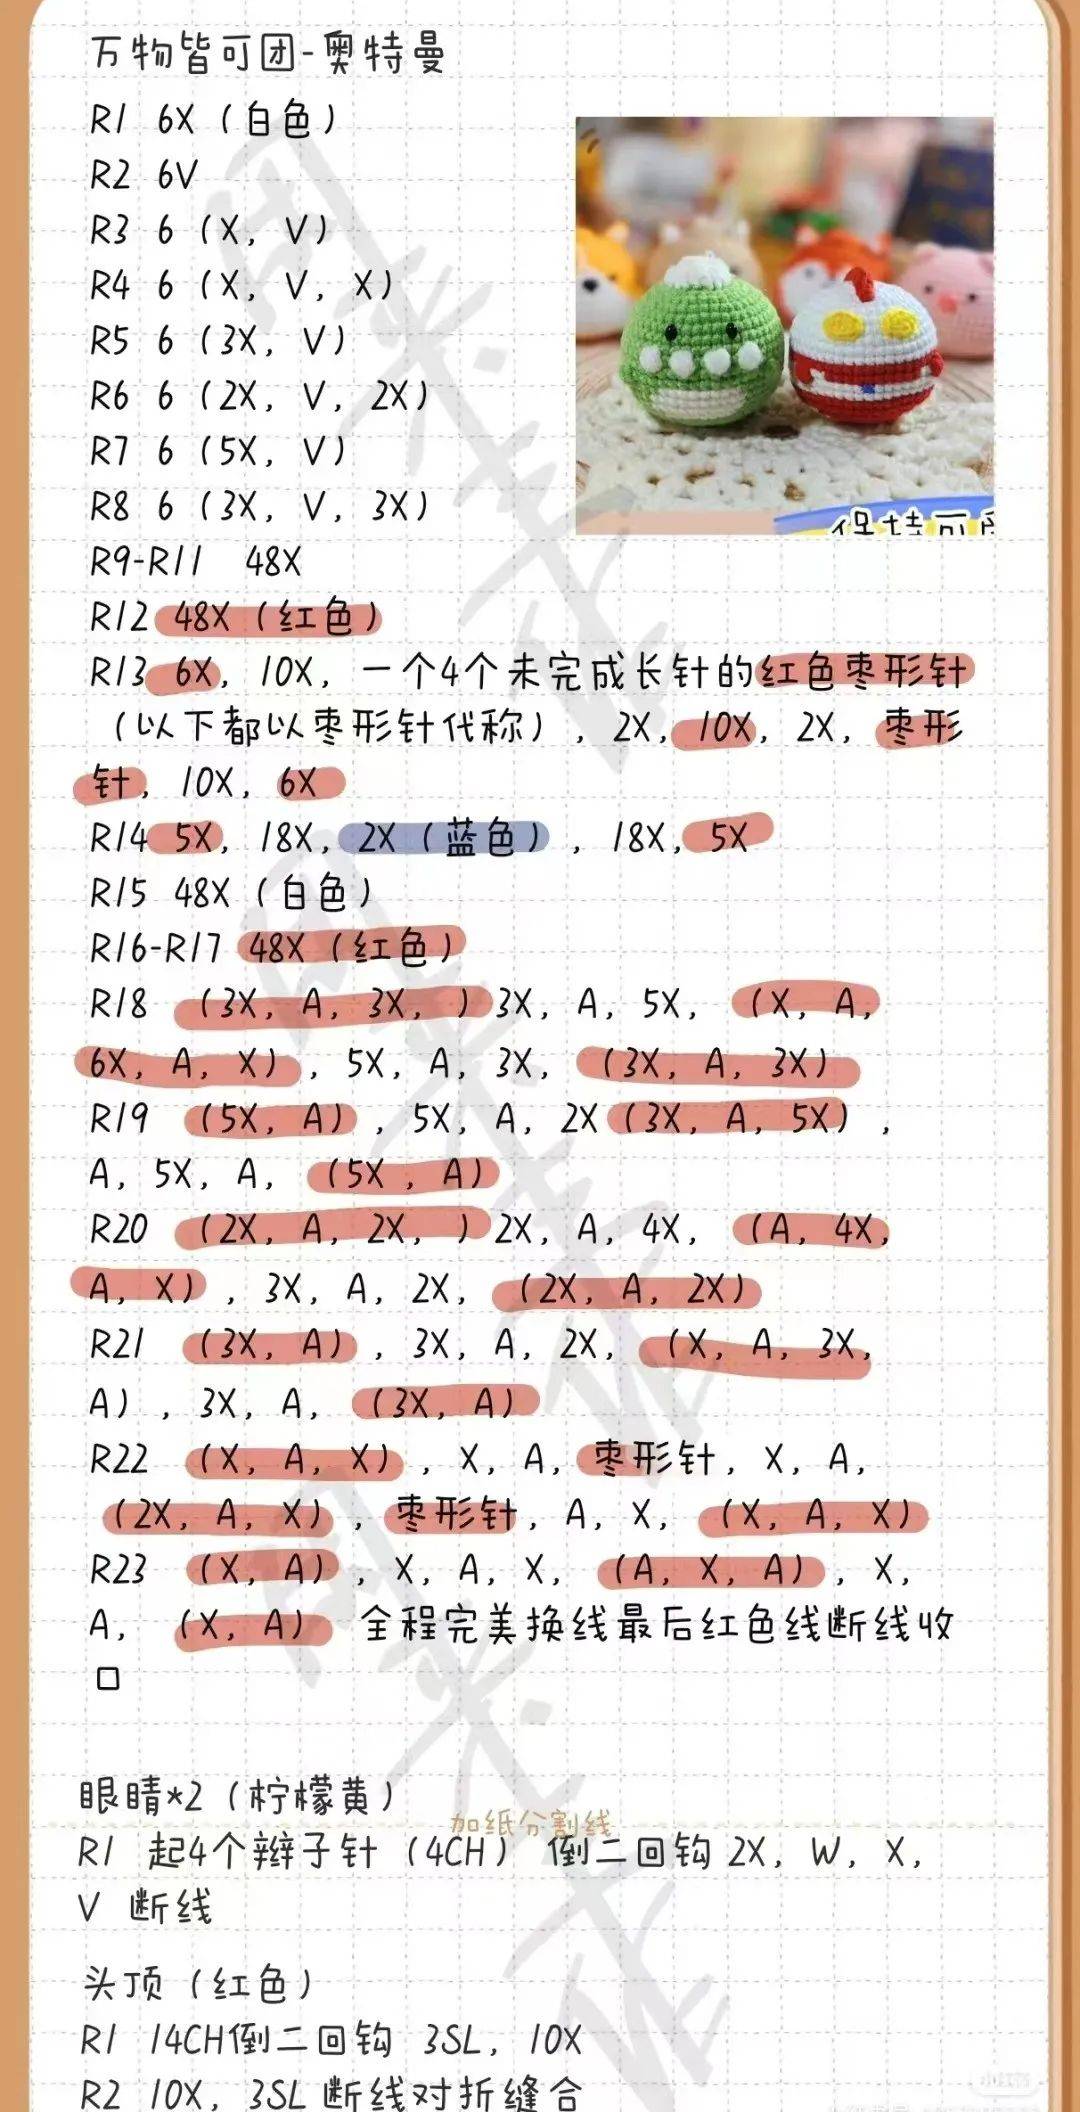 万物皆可团-奥特曼
R1 6X（白色）
R2 6V
R3 6（X，V）
R4 6（X，V，X）
R5 6（3X，V）
R6 6（2X，V，2X）
R7 6（5X，V）
R8 6（3X，V，3X）
R9-R11 48X
R12 48X（红色）
R13 6X，10X，一个4个未完成长针的红色枣形针
（以下都以枣形针代称），2X，10X，2X，枣形
针，10X，6X
R14 5X，18X，2X（蓝色），18X，5X
R15 48X（白色）
R16-R17 48X（红色）
R18 （3X，A，3X，）3X，A，5X，（X，A，
6X，A，X），5X，A，3X，（3X，A，3X）
R19 （5X，A），5X，A，2X（3X，A，5X），
A，5X，A，（5X，A）
R20 （2X，A，2X，）2X，A，4X，（A，4X，
A，X），3X，A，2X，（2X，A，2X）
R21 （3X，A），3X，A，2X，（X，A，3X，
A），3X，A，（3X，A）
R22 （X，A，X），X，A，枣形针，X，A，
（2X，A，X），枣形针，A，X，（X，A，X）
R23 （X，A），X，A，X，（A，X，A），X，
A，（X，A） 全程完美换线最后红色线断线收
口
眼睛*2（柠檬黄）
加纸分割线
R1 起4个辫子针（4CH） 倒二回钩 2X，W，X，
V 断线
头顶（红色）
R1 14CH倒二回钩 3SL，10X
R2 10X，3SL 断线对折缝合
小红书